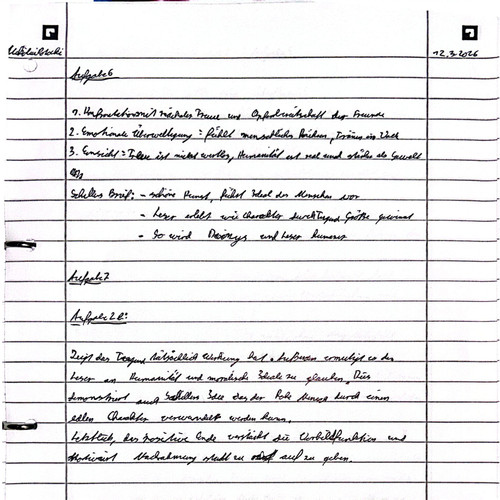 12.3.2026
Aufgabe 6
1. Konfrontation mit Treue und Opferbereitschaft der Freunde
2. Emotionale Überwältigung = fühlt menschliches Rühren, Tränen im
3. Einsicht = Treue ist nicht wertlos, Humanität ist real und stärker als Gewalt
Schillers Brief: - schöne Kunst, führt Ideal des Menschen vor
- Leser erlebt wie Charakter durch Tugend Größe gewinnt
- So wird Dionys und Leser humaner
Aufgabe 7
Aufgabe 2 b:
Zeigt das Tugend tatsächlich Wirkung hat. Außerdem ermutigt es den
Leser an Humanität und moralische Ideale zu glauben. Dies
demonstriert auch Schillers Idee das der Rohe Mensch durch einen
edlen Charakter verwandelt werden kann.
das positive Ende verstärkt die Vorbildfunktion und
Motiviert Nachahmung statt zu auf zu geben.